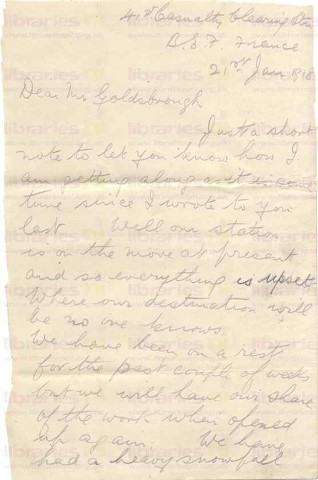 41st Casualty Clearing Stn
B.E.F. France
21st Jan 1918
Dear Mr Goldsbrough
Just a short
note to let you know how I
am getting along as it is some
time since I wrote to you
last. Well our station
is on the move at present
and so everything is upset
Where our destination will
be no one knows.
We have been on a rest
for the past couple of weeks
but we will have our share
of the work when opened
up again. We have
had a heavy snowfall